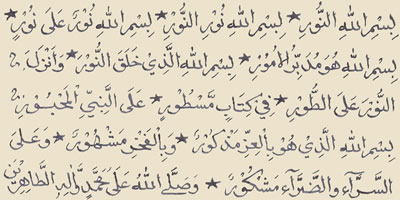 بِسْمِ اللهِ النُّوْرِ ★ بِسْمِ اللهِ نُوْرِ النُّوْرِ ★ بِسْمِ اللهِ نُوْرٌ عَلٰى نُوْرٍ ★
بِسْمِ اللهِ هُوَ مُدَبِّرُ الْاُمُوْرِ ★ بِسْمِ اللهِ الَّذِيْ خَلَقَ النُّوْرَ ★ وَاَنْزَلَ
النُّوْرَ عَلَى الطُّوْرِ ★ فِيْ كِتَابٍ مَّسْطُوْرٍ ★ عَلَى النَّبِيِّ الْمَحْبُوْرِ
بِسْمِ اللهِ الَّذِيْ هُوَ بِالْعِزِّ مَذْكُوْرٌ ★ وَبِالْفَخْرِ مَشْهُوْرٌ ★ وَعَلَى
السَّرَّآءِ وَالضَّرَّآءِ مَشْكُوْرٌ ★ وَصَلَّى اللهُ عَلٰى مُحَمَّدٍ وَّاٰلِهِ الطَّاهِرِيْنَ